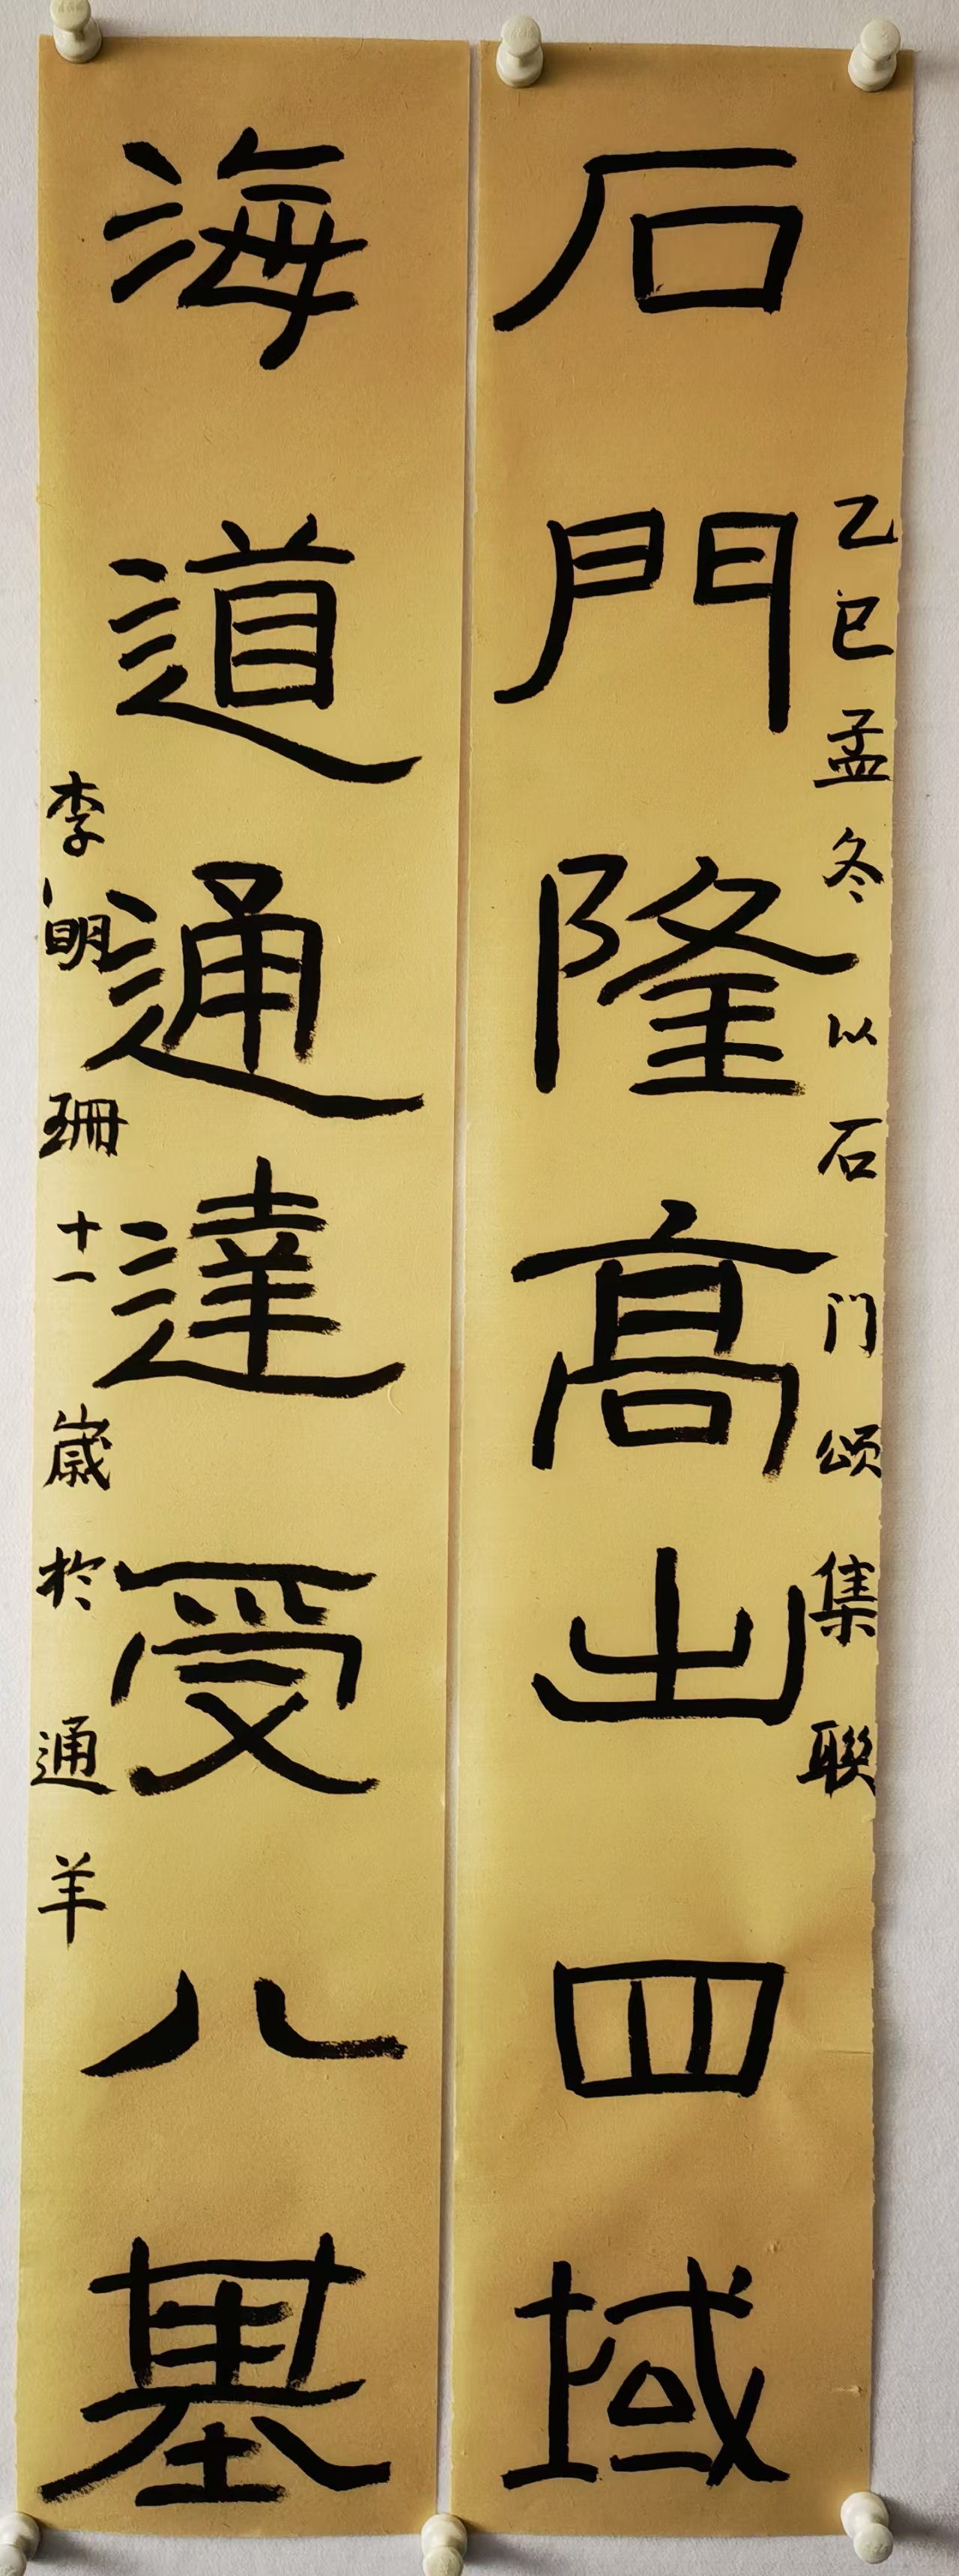 乙巳孟冬以石门颂集联
石門隆高出四域
海道通達受八基
李明珊十一歲於通羊